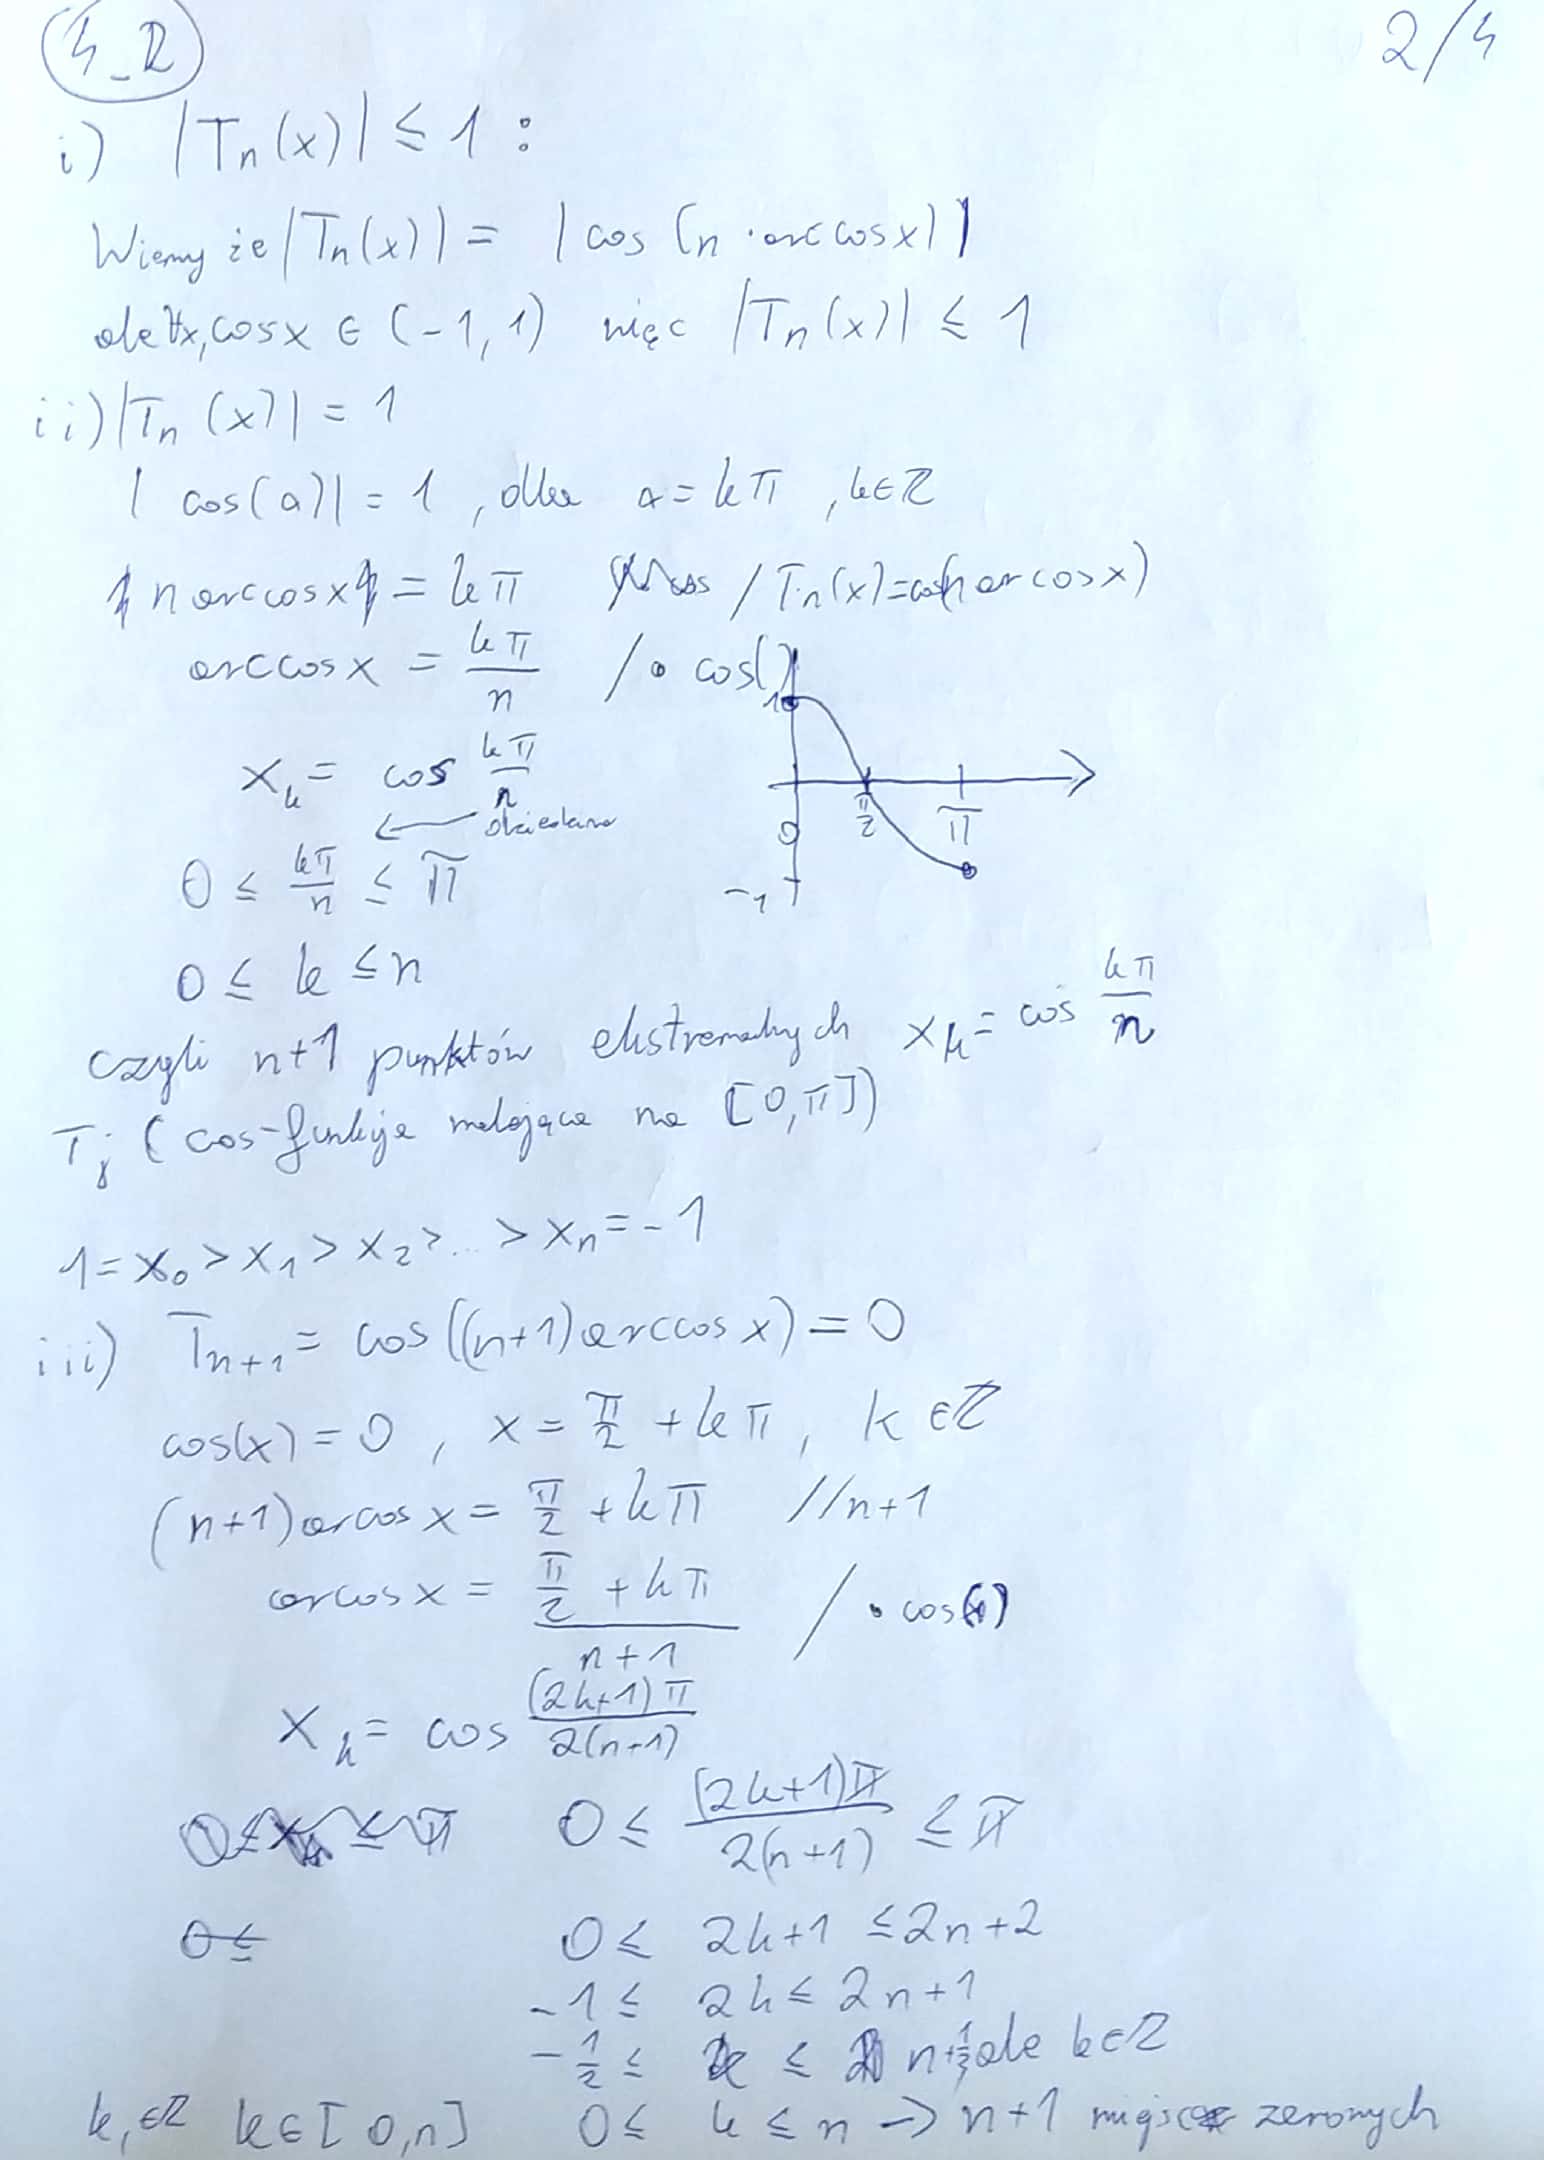 4_R
2/4
i) |Tn(x)| ≤ 1 :
Wiemy że |Tn(x)| = | cos (n · arccosx)|
ale ∀x, cosx ∈ (-1, 1) więc |Tn(x)| ≤ 1
ii) |Tn(x)| = 1
| cos(a)| = 1 , dla a = kπ , k∈ℤ
n arccosx = kπ / Tn(x)=cos(n arcosx)
arccosx = kπ/n / • cos()
xk = cos kπ/n
← dziedzina
0 ≤ kπ/n ≤ π
1
0
π/2
π
-1
0 ≤ k ≤ n
czyli n+1 punktów ekstremalnych xk = cos kπ/n
Tj (cos-funkcja malejąca na [0,π])
1 = x0 > x1 > x2 > ... > xn = -1
iii) Tn+1 = cos((n+1)arccos x) = 0
cos(x) = 0 , x = π/2 + kπ, k ∈ℤ
(n+1)arcos x = π/2 + kπ //n+1
arcos x = (π/2 + kπ)/(n+1) / • cos()
xk = cos (2k+1)π/2(n+1)
0 ≤ (2k+1)π/2(n+1) ≤ π
0 ≤
0 ≤ 2k+1 ≤ 2n+2
-1 ≤ 2k ≤ 2n+1
-1/2 ≤ k ≤ n+1/2 ale k∈ℤ
k,∈ℤ k∈[0,n] 0 ≤ k ≤ n → n+1 miejsc zerowych